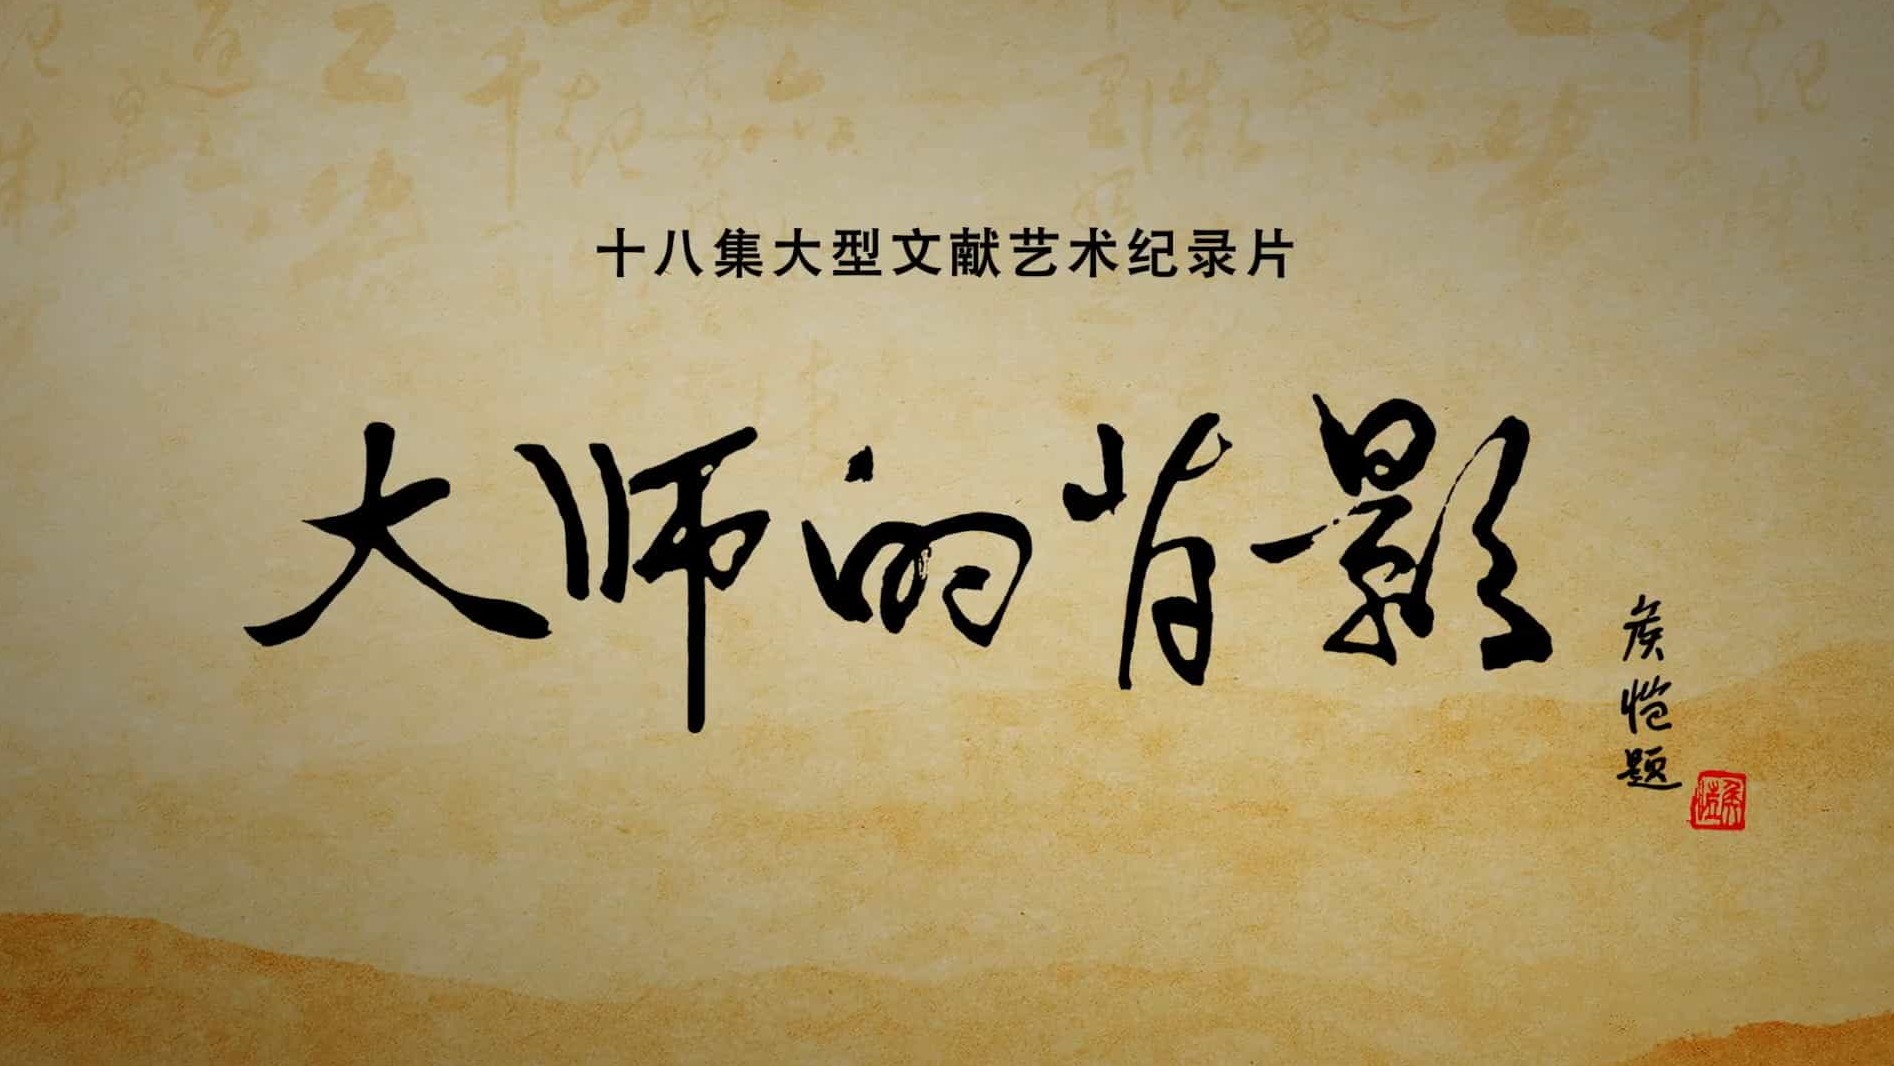 十八集大型文献艺术纪录片
大师的背影
侯恺题